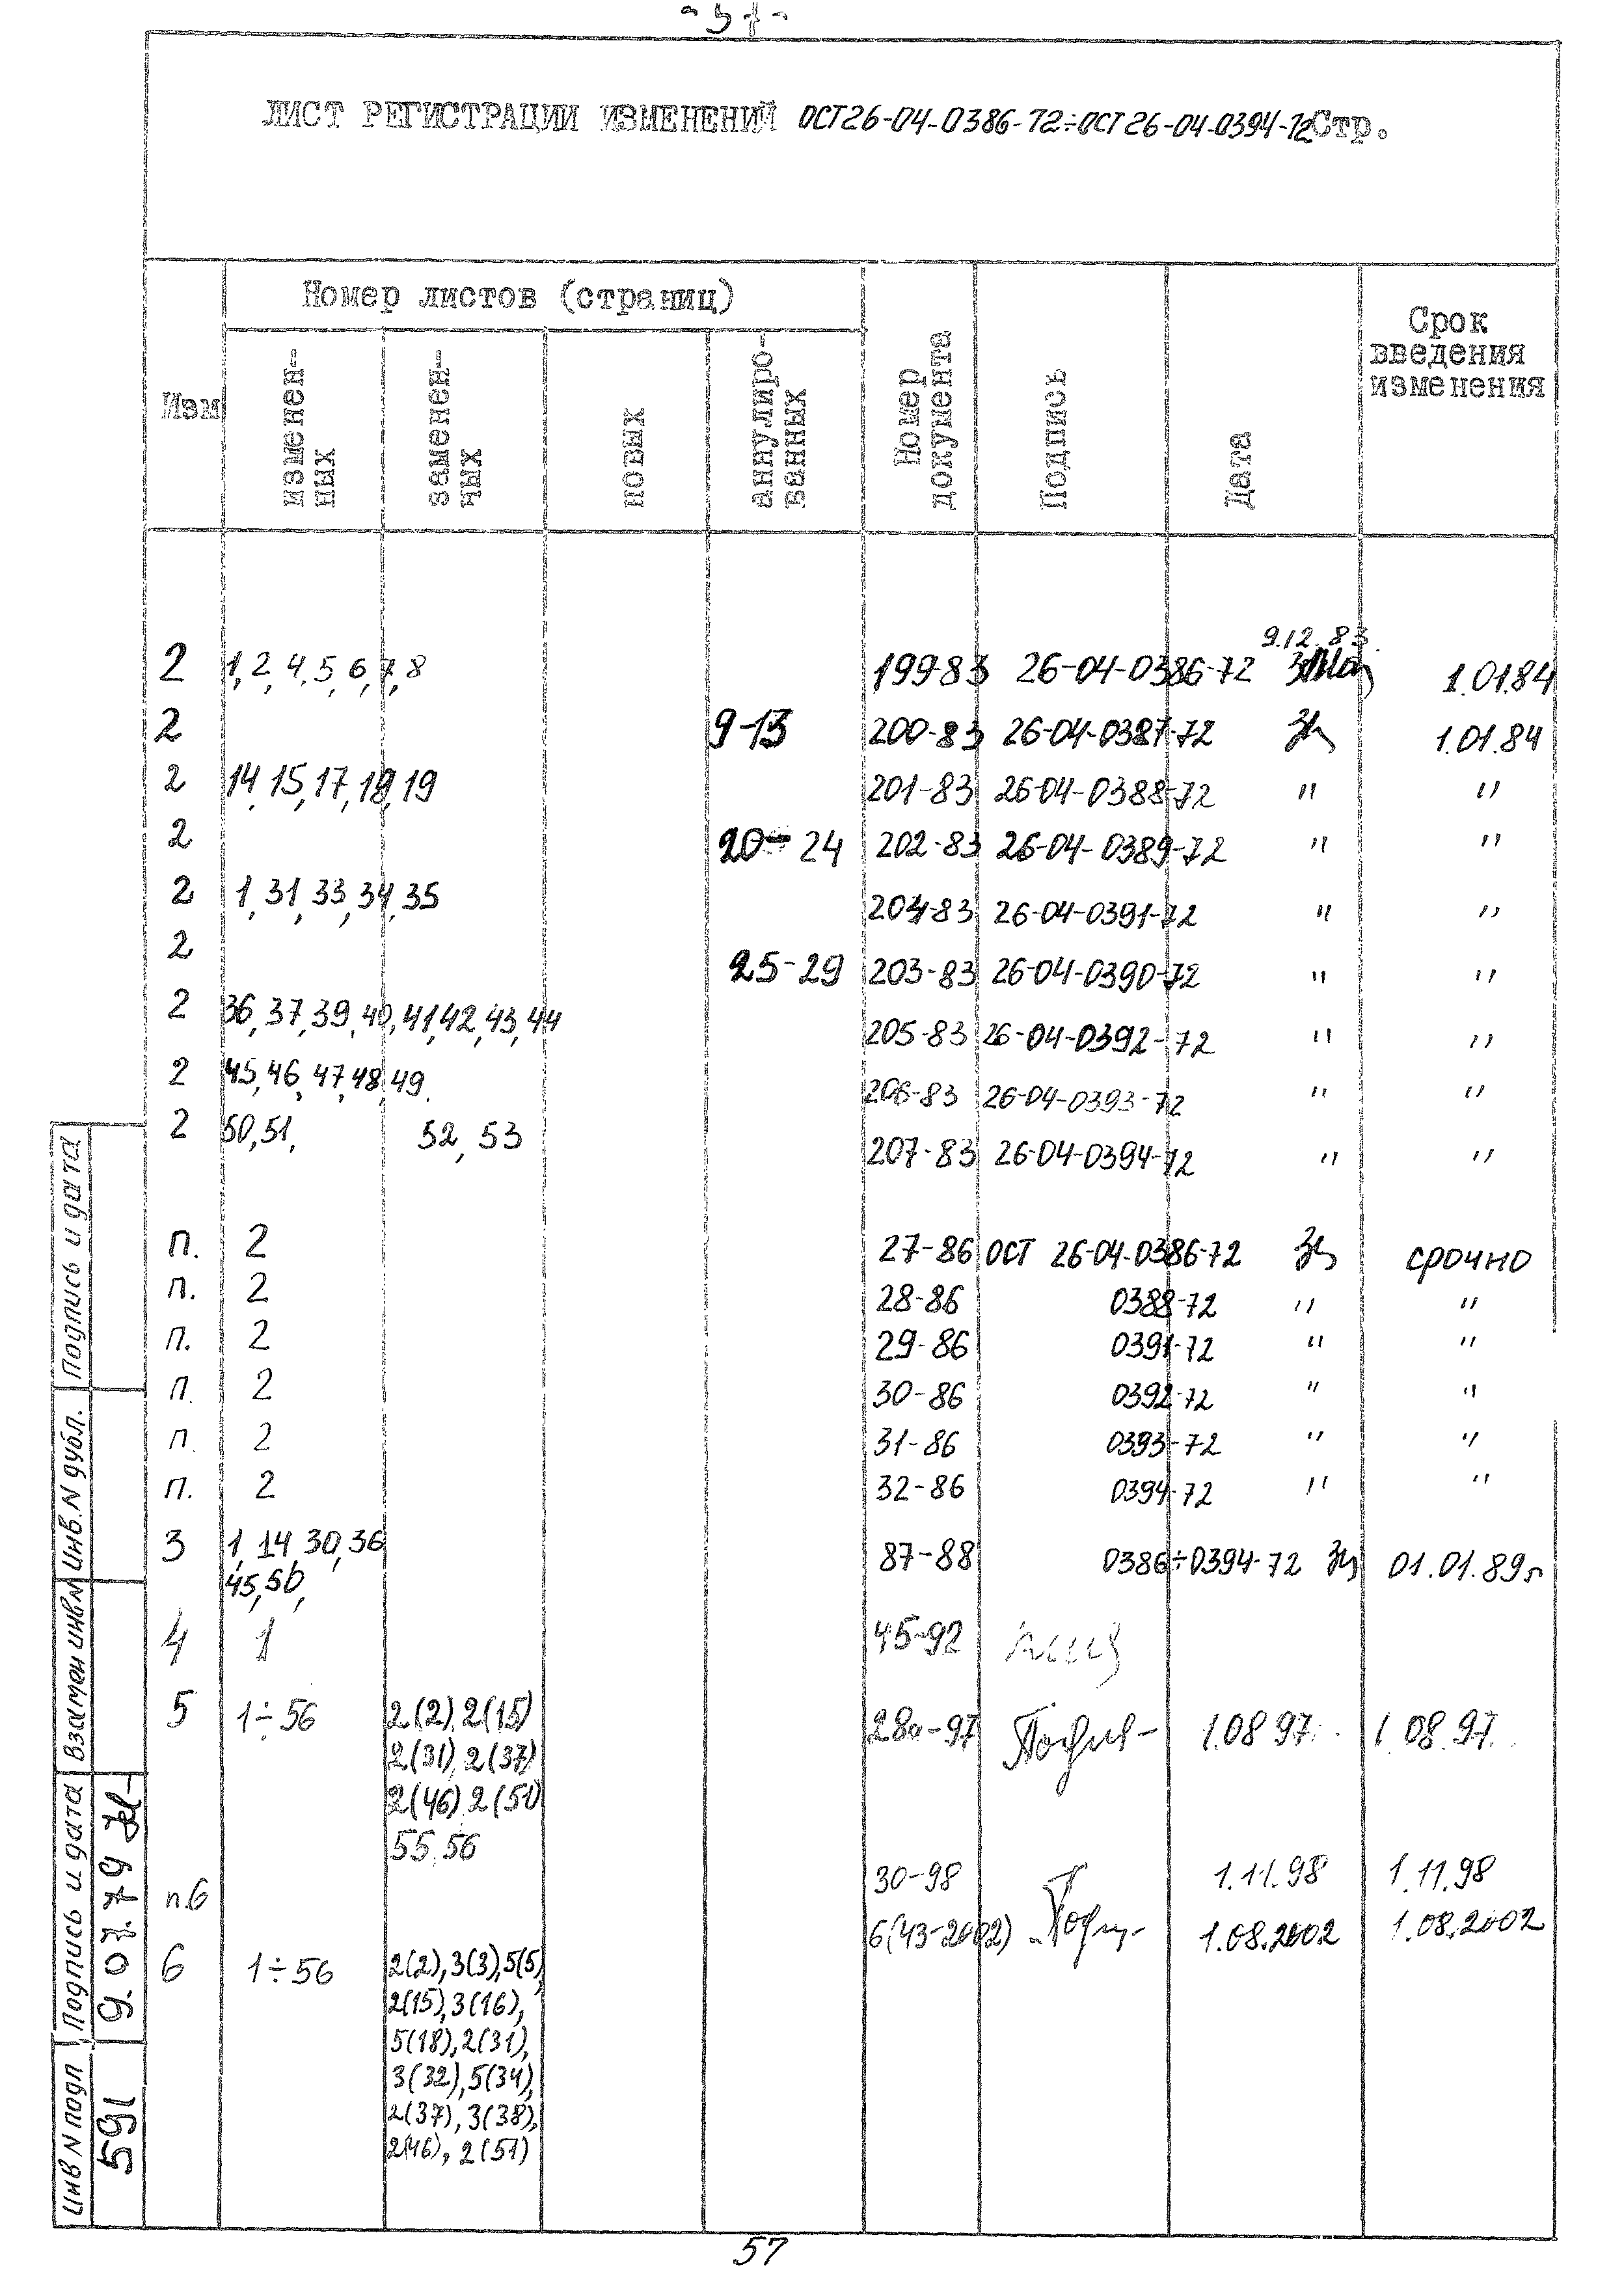 - 57 -
ЛИСТ РЕГИСТРАЦИИ ИЗМЕНЕНИЙ ОСТ26-04-0386-72÷ОСТ26-04-0394-72 Стр.
Изм
Номер листов (страниц)
изменен-
ных
заменен-
ных
новых
аннулиро-
ванных
Номер
документа
Подпись
Дата
Срок
введения
изменения
9.12.83.
2 1,2,4,5,6,7,8 199-83 26-04-0386-72 1.01.84
2 9-13 200-83 26-04-0387-72 1.01.84
2 14,15,17,18,19 201-83 26-04-0388-72 " "
2 20-24 202-83 26-04-0389-72 " "
2 1,31,33,34,35 204-83 26-04-0391-72 " "
2 25-29 203-83 26-04-0390-72 " "
2 36,37,39,40,41,42,43,44 205-83 26-04-0392-72 " "
2 45,46,47,48,49. 206-83 26-04-0393-72 " "
2 50,51, 52,53 207-83 26-04-0394-72 " "
п. 2 27-86 ОСТ 26-04-0386-72 срочно
п. 2 28-86 0388-72 " "
п. 2 29-86 0391-72 " "
п. 2 30-86 0392-72 " "
п. 2 31-86 0393-72 " "
п. 2 32-86 0394-72 " "
3 1,14,30,36 87-88 0386÷0394-72 01.01.89г
45,50,
4 1 45-92
5 1÷56 2(2),2(15) 28а-97 1.08.97. 1.08.97.
2(31),2(37)
2(46),2(51)
55,56
п.6 30-98 1.11.98 1.11.98
6(43-2002) 1.08.2002 1.08.2002
6 1÷56 2(2),3(3),5(5),
2(15),3(16),
5(18),2(31),
3(32),5(34),
2(37),3(38),
2(46),2(51)
Подпись и дата
Инв.N дубл.
Взамен инв N
Подпись и дата
9.07.79
Инв N подл
591
57